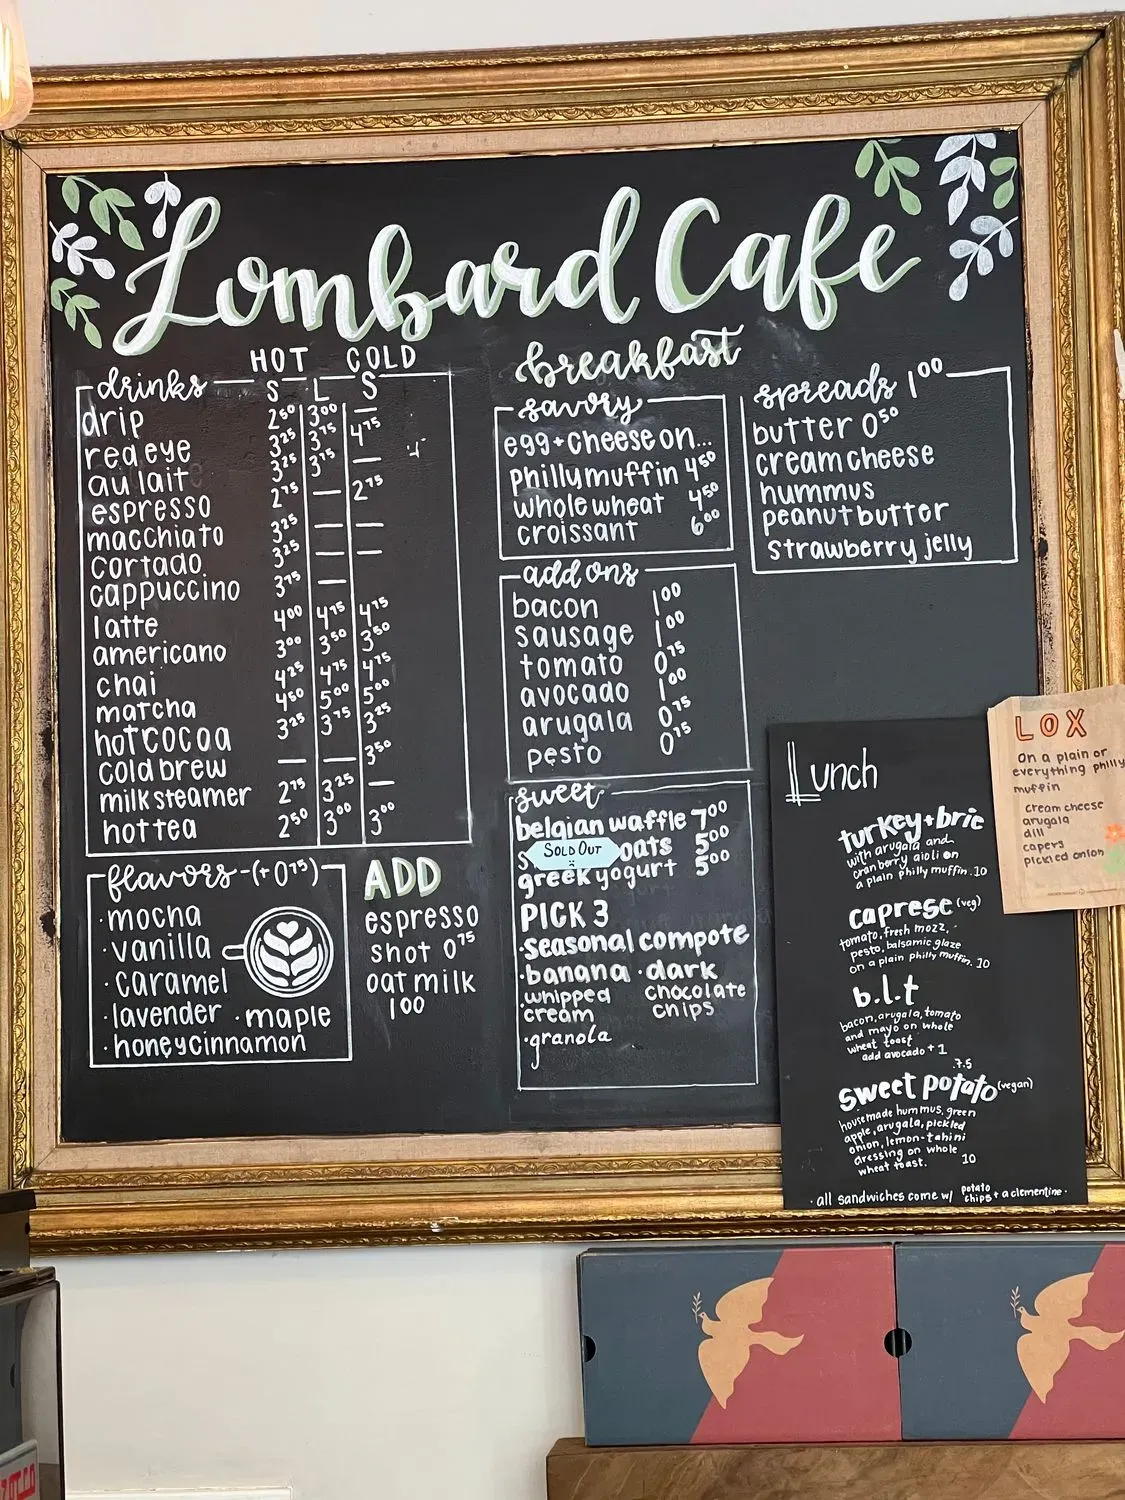 Lombard Cafe
HOT COLD
drinks S L S
drip 2⁵⁰ 3⁰⁰ —
red eye 3²⁵ 3⁷⁵ 4⁷⁵
au lait 3²⁵ 3⁷⁵ —
espresso 2⁷⁵ — 2⁷⁵
macchiato 3²⁵ — —
cortado 3²⁵ — —
cappuccino 3⁷⁵ —
latte 4⁰⁰ 4⁷⁵ 4⁷⁵
americano 3⁰⁰ 3⁵⁰ 3⁵⁰
chai 4²⁵ 4⁷⁵ 4⁷⁵
matcha 4⁵⁰ 5⁰⁰ 5⁰⁰
hot cocoa 3²⁵ 3⁷⁵ 3²⁵
cold brew — — 3⁵⁰
milk steamer 2⁷⁵ 3²⁵ —
hot tea 2⁵⁰ 3⁰⁰ 3⁰⁰
flavors -(+0⁷⁵)
·mocha
·vanilla
·caramel
·lavender ·maple
·honey cinnamon
ADD
espresso
shot 0⁷⁵
oat milk
1⁰⁰
breakfast
savory
egg + cheese on...
philly muffin 4⁵⁰
whole wheat 4⁵⁰
croissant 6⁰⁰
add ons
bacon 1⁰⁰
sausage 1⁰⁰
tomato 0⁷⁵
avocado 1⁰⁰
arugala 0⁷⁵
pesto 0⁷⁵
sweet
belgian waffle 7⁰⁰
SOLD OUT oats 5⁰⁰
greek yogurt 5⁰⁰
PICK 3
·seasonal compote
·banana ·dark
·whipped chocolate
cream chips
·granola
spreads 1⁰⁰
butter 0⁵⁰
cream cheese
hummus
peanut butter
strawberry jelly
Lunch
turkey + brie
with arugala and
cranberry aioli on
a plain philly muffin .10
caprese (veg)
tomato, fresh mozz,
pesto, balsamic glaze
on a plain philly muffin. 10
b.l.t
bacon, arugala, tomato
and mayo on whole
wheat toast
add avocado +1
.7.5
sweet potato (vegan)
housemade hummus, green
apple, arugala, pickled
onion, lemon-tahini
dressing on whole
wheat toast. 10
·all sandwiches come w/ potato chips + a clementine·
LOX
On a plain or
everything philly
muffin
cream cheese
arugala
dill
capers
pickled onion